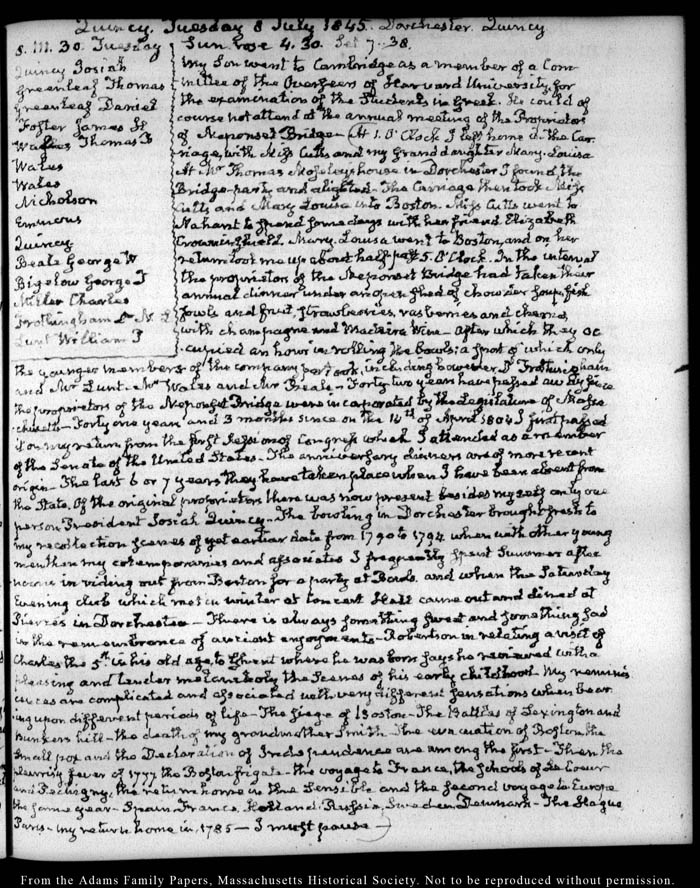 Quincy. Tuesday 8 July 1845. Dorchester. Quincy
S. III. 30. Tuesday
Quincy Josiah
Greenleaf Thomas
Greenleaf Daniel
Foster James H
Wales Thomas B
Wales
Wales
Nicholson
Emmons
Quincy
Beale George W
Bigelow George T
Miller Charles
Frothingham N. L
Lunt William P
Sun rose 4. 30. Set 7. 38.
My Son went to Cambridge as a member of a Com-
mittee of the Overseers of Harvard University, for
the examination of the Students in Greek. He could of
course not attend at the annual meeting of the Proprietors
of Neponset Bridge— At 1. O'Clock I left home in the Car-
riage, with Miss Cutts and my Grand daughter Mary-Louisa
At Mr Thomas Moseley's house in Dorchester I found the
Bridge-party and alighted— The Carriage then took Miss
Cutts and Mary Louisa into Boston. Miss Cutts went to
Nahant to spend some days with her friend Elizabeth
Crowninshield. Mary-Louisa went to Boston, and on her
return took me up about half past 5. O'Clock. In the interval
the proprietors of the Neponset Bridge had taken their
annual dinner under an open shed of chowder soup, fish
fowls and fruit, strawberries, rasberries and cherries,
with champagne and Madeira Wine— After which they oc-
-cupied an hour in rolling the bowls; a sport of which only
the younger members of the company partook, including however Dr Frothingham
and Mr Lunt. Mr Wales and Mr Beale— Forty two years have passed away since
the proprietors of the Neponset Bridge were incorporated by the Legislature of Massa-
chusetts— Forty one years and 3 months since on the 14th of April 1804 I first passed
it on my return from the first Session of Congress which I attended as a member
of the Senate of the United States— The anniversary dinners are of more recent
origin— The last 6 or 7 years they have taken place when I have been absent from
the State. Of the original proprietors there was now present besides myself only one
person President Josiah Quincy— The bowling in Dorchester brought fresh to
my recollection scenes of yet earlier date from 1790 to 1794 when with other young
men then my cotemporaries and associates I frequently spent Summer after-
noons in riding out from Boston for a party at Bowls. and when the Saturday
Evening club which met in winter at Concert Hall came out and dined at
Pierce's in Dorchester— There is always something sweet and something sad
in the remembrance of ancient enjoyments— Robertson in relating a visit of
Charles the 5th in his old age, to Ghent where he was born says he reviewed with a
pleasing and tender melancholy the scenes of his early childhood— My reminis-
cences are complicated and associated with very different sensations when bear-
ing upon different periods of life— The siege of Boston— The Battles of Lexington and
Bunkers hill— the death of my grandmother Smith— The evacuation of Boston, the
small pox and the Declaration of Independence are among the first— Then the
pleurisy fever of 1777 the Boston frigate— the voyage to France, the schools of Le Coeur
and Pechigny, the return home in the Sensible and the second voyage to Europe
the same year— Spain, France, Holland, Russia, Sweden, Denmark— The Hague
Paris— my return home in, 1785— I must pause—
From the Adams Family Papers, Massachusetts Historical Society. Not to be reproduced without permission.